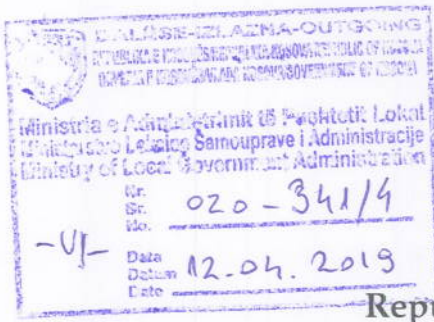 DALËSE-IZLAZNA-OUTGOING
Ministria e Administrimit të Pushtetit Lokal
Ministarstvo Lokalne Samouprave i Administracije
Ministry of Local Government Administration
Nr.
Br.
No.
020-341/4
-VJ-
Data
Datum
Date
12.04.2019
Repu